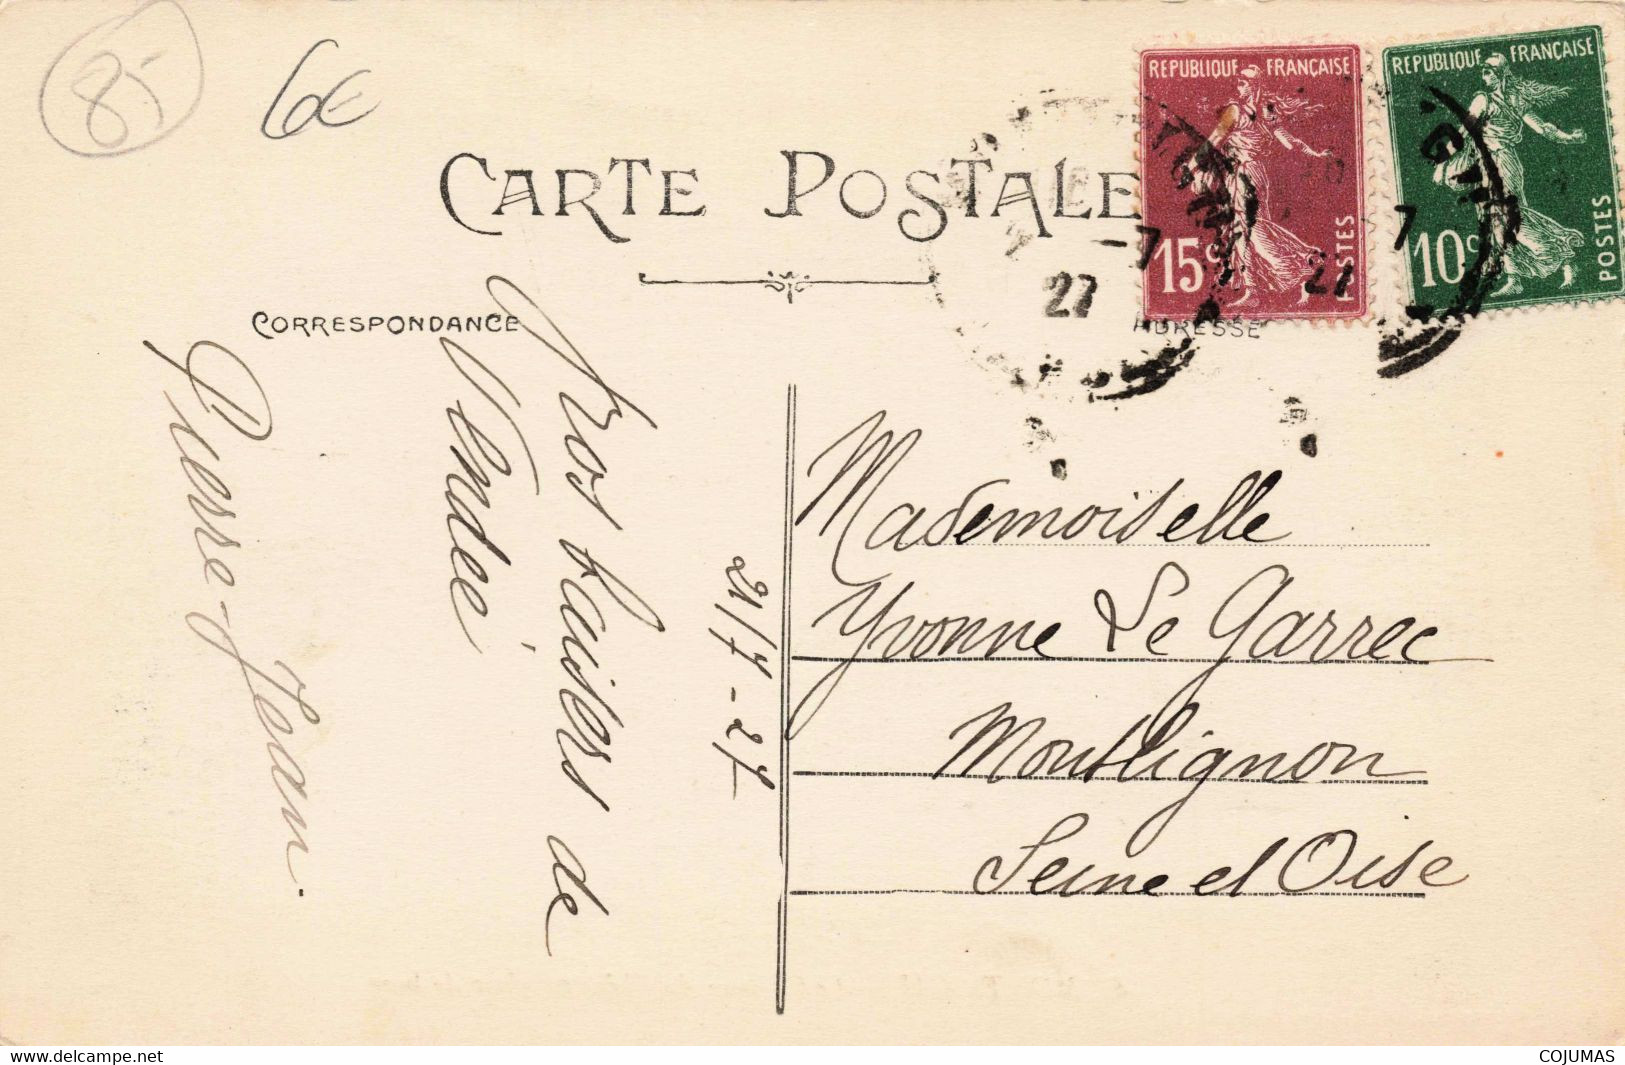 85
6€
CARTE POSTALE
REPUBLIQUE FRANÇAISE
15c
POSTES
REPUBLIQUE FRANÇAISE
10c
POSTES
-7
27
7
27
CORRESPONDANCE
ADRESSE
Gros baisers de
Vendée
Pierre-Jean.
21/7-27
Mademoiselle
Yvonne Le Garrec
Montlignon
Seine et Oise
www.delcampe.net
COJUMAS